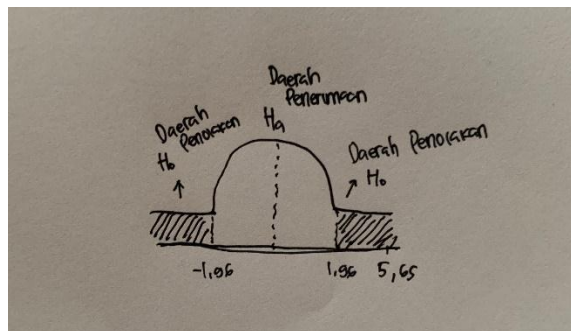 Daerah
Penerimaan
Ha
Daerah
Penolakan
Ho
Daerah Penolakan
Ho
-1,96
1,96
5,65